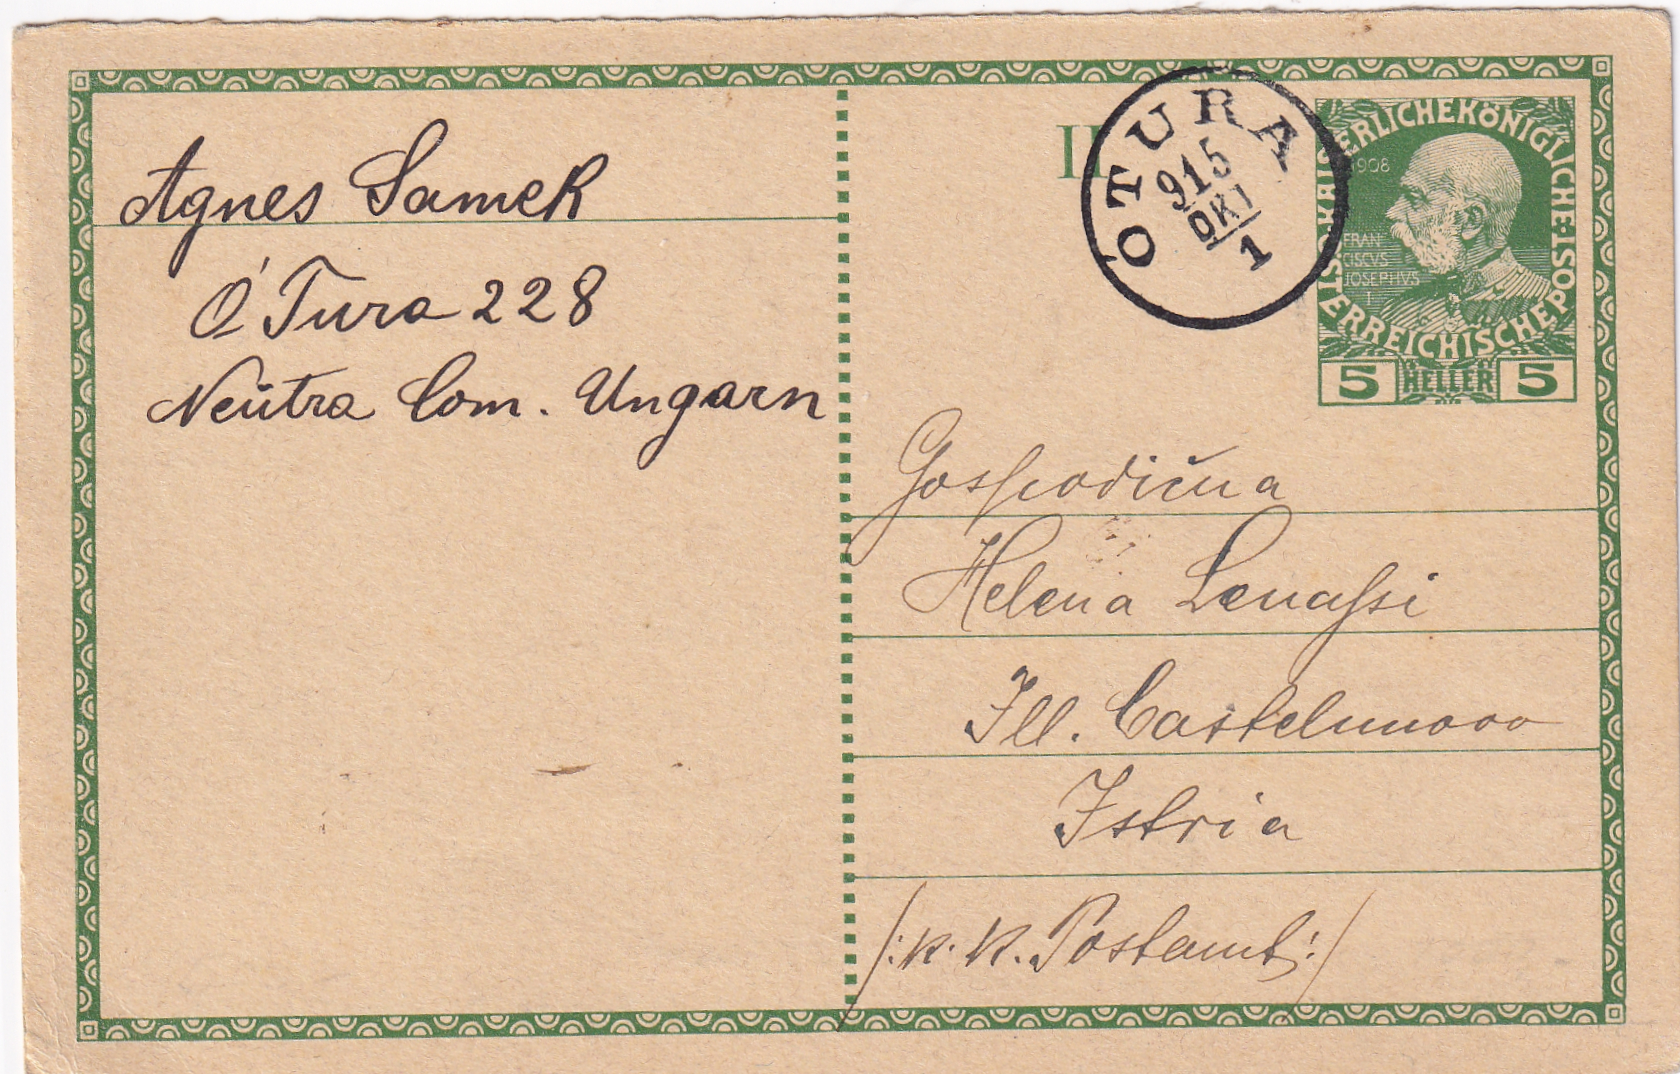 Agnes Samek
Ó Tura 228
Neutra Com. Ungarn
II
ÓTURA
915
OKT
1
KAISERLICHEKÖNIGLICHE
ÖSTERREICHISCHEPOST
1908
FRAN
CISCVS
IOSEPHVS
I
5 HELLER 5
Gospodična
Helena Lenassi
Ill. Castelnuovo
Istria
/: k. k. Postamt :/